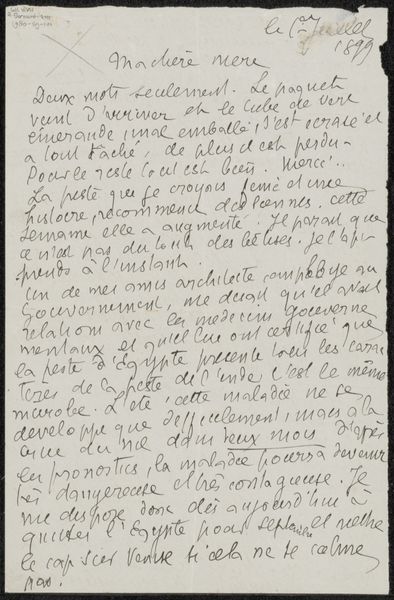 le 1er Juillet
1899
Ma chère mère
Deux mots seulement. Le paquet
vient d'arriver et le tube de vert
émeraude, mal emballé, s'est écrasé et
a tout tâché, de plus il est perdu.
Pour le reste tout est bien. Merci!..
La peste que je croyais finie et une
histoire, recommence de
semaine elle a augmenté. Il parait que
ce n'est pas du tout des bêtises. Je l'ap-
prends à l'instant.
Un de mes amis architecte employé au
Gouvernement, me disait qu'il avait
relations avec les médecins gouverne
mentaux et qu'ils lui ont certifié que
la peste d'Egypte présente tous les carac
tères de la peste de l'Inde c'est le même
microbe. L'été, cette maladie ne se
développe que difficilement, mais à la
crue du Nil dans deux mois d'après
les pronostics, la maladie pourra devenir
très dangereuse et très contagieuse. Je
me dispose donc dès aujourd'hui à
quitter l'Egypte pour septembre et mettre
le cap sur Venise si cela ne se calme
pas.